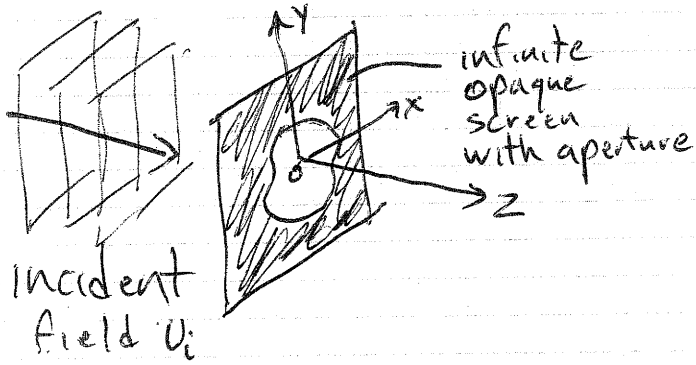 Y
X
O
Z
infinite
opaque
screen
with aperture
incident
field Ui